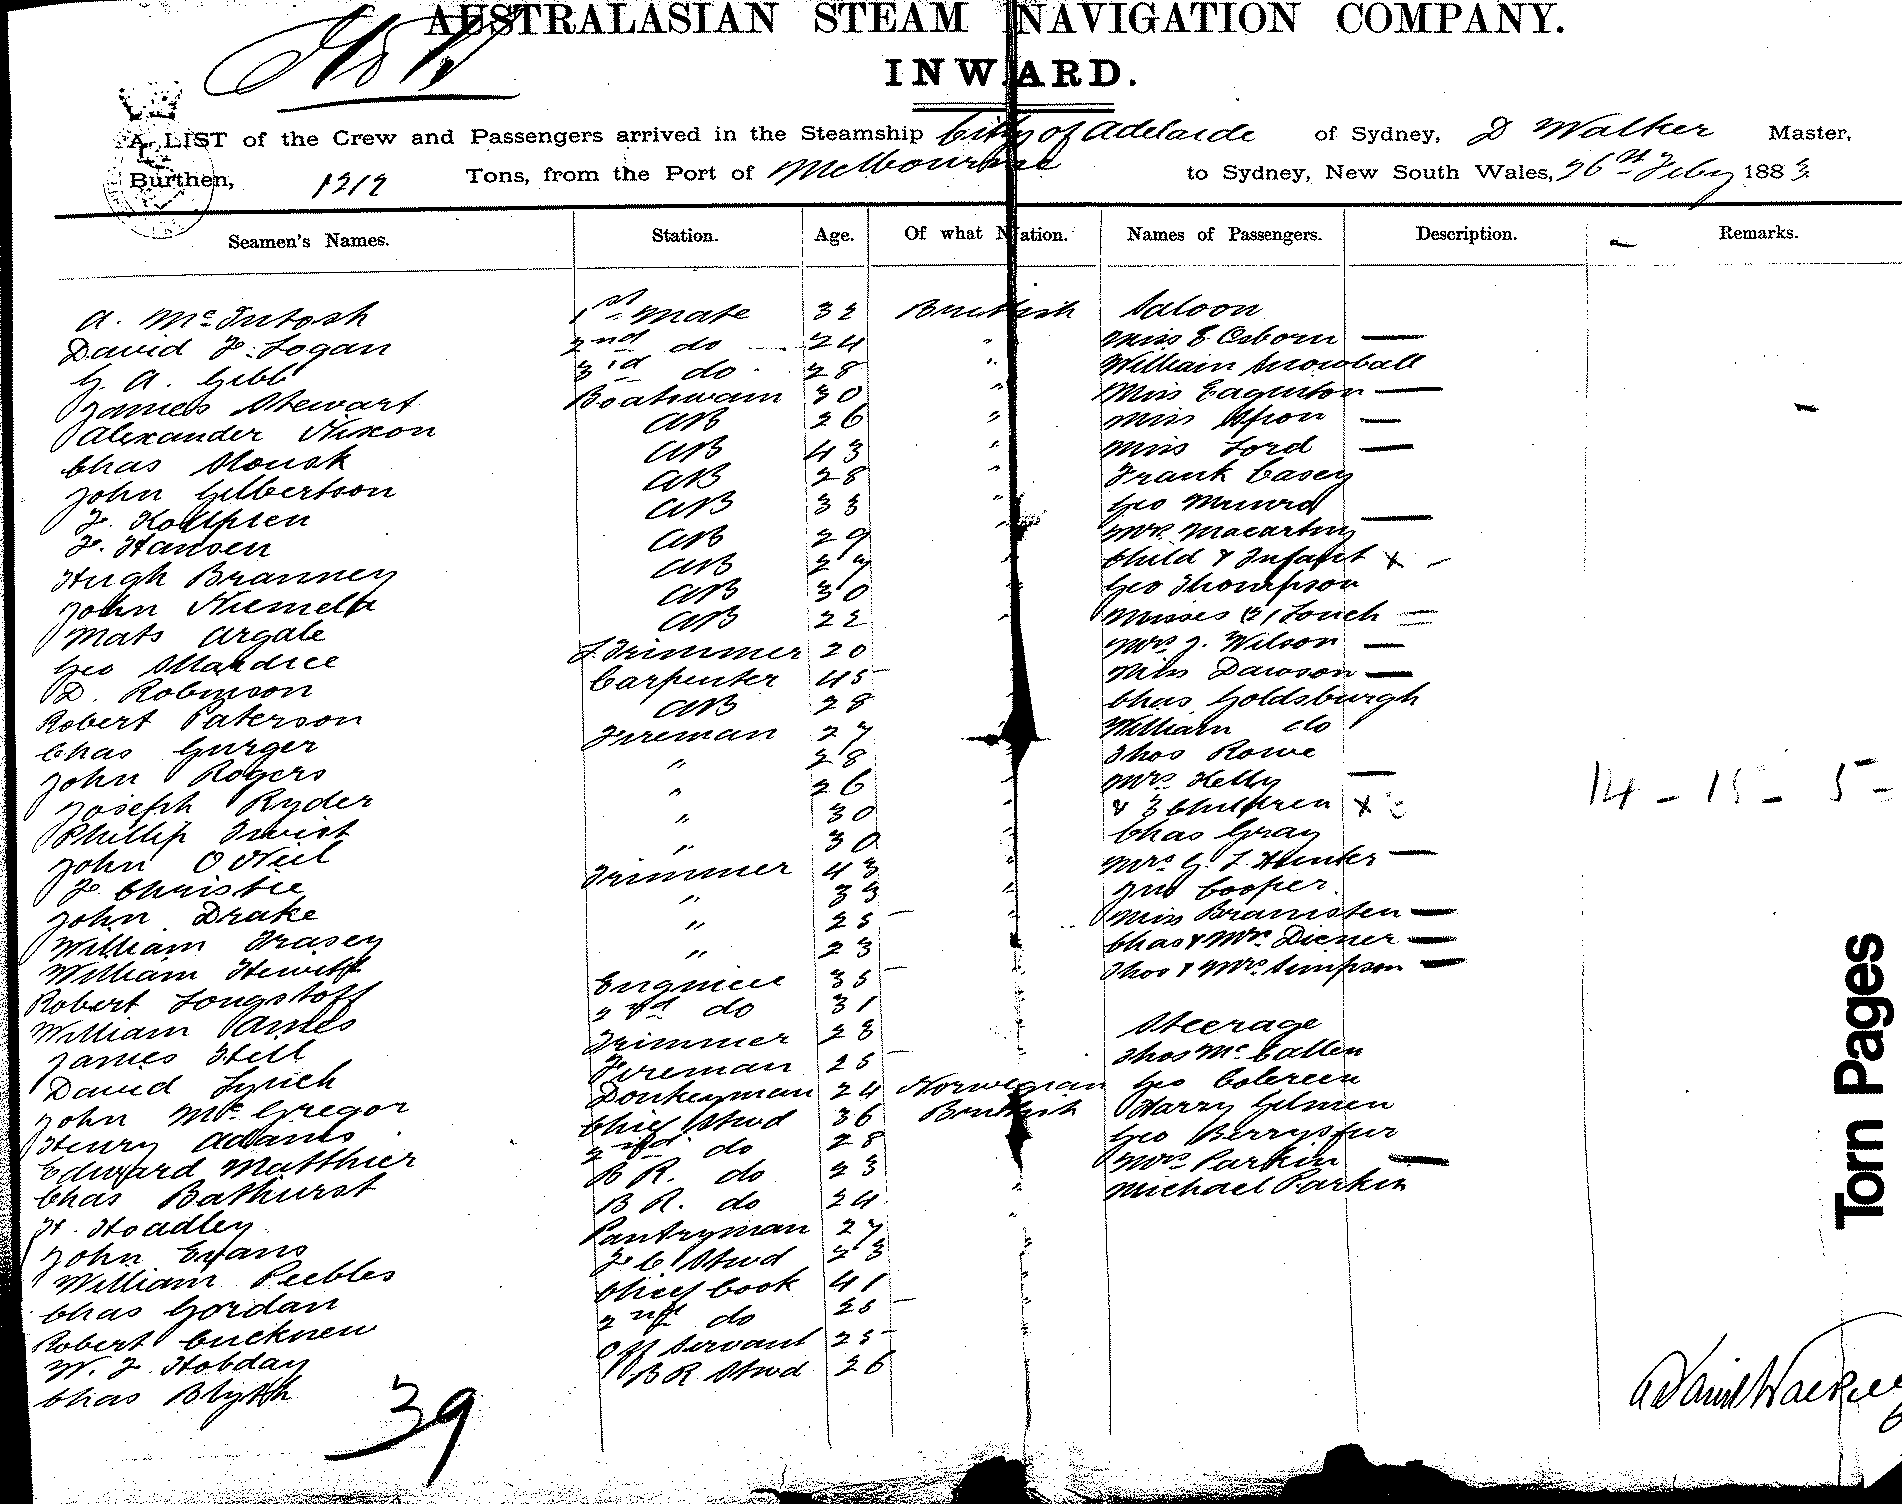 AUSTRALASIAN STEAM NAVIGATION COMPANY.
INWARD.
A LIST of the Crew and Passengers arrived in the Steamship City of Adelaide of Sydney, D Walker Master,
Burthen, 1212 Tons, from the Port of Melbourne to Sydney, New South Wales, 26th Feby 1883
Seamen's Names. Station. Age. Of what Nation. Names of Passengers. Description. Remarks.
A. McIntosh 1st Mate 32 British Saloon
David F. Logan 2nd do 24 " Miss E Osborn —
G. A. Gibb 3rd do 28 " William Snowball
James Stewart Boatswain 30 " Miss Eaginton —
Alexander Nixon AB 26 " Miss —
Chas AB 43 " Miss Lord —
John Gilbertson AB 28 " Frank Casey
F. AB 33 " Geo Munro
F. Hansen AB 29 Mrs Macartney —
Hugh Branney AB 27 " Child & Infant x -
John Niemela AB 30 " Geo Thompson
Mats Argale AB 22 Misses Louch =
Geo L. Trimmer 20 Mrs J. Wilson —
D. Robinson Carpenter 45 Miss Dawson —
Robert Paterson AB 28 Chas Goldsburgh
Chas Gurger Fireman 27 William do
John Rogers " 28 Thos Rowe
Joseph Ryder " 26 Mrs Kelly —
Phillip Twist " 30 & 3 Children x 3 14 - 15 - 5 -
John O'Neil " 30 Chas Gray
F. Christie Trimmer 43 Mrs G. F. Hunter —
John Drake " 33 Jno Cooper
William Frasey " 25 Miss Bramsten —
William Hewitt " 23 Chas & Mrs Diener —
Robert Longstaff Engineer 35 Thos & Mrs Simpson —
William Ames 2nd do 31
James Hill Trimmer 28 Steerage
David Lynch Fireman 25 Thos McCallen
John McGregor Donkeyman 24 Norwegian Geo
Henry Adams Chief Stwd 36 British Harry Gilmen
Edward Matthier 2nd do 28 Geo
Chas Bathurst B R. do 23 Mrs Parkin —
H. Hoadley B R. do 24 Michael Parkin
John Evans Pantryman 27
William Peebles F C Stwd 23
Chas Gordan Chief Cook 41
Robert Cuckneu 2nd do 25
W. F. Hobday Off Servant 25
Chas Blyth B R Stwd 26
39
Torn Pages